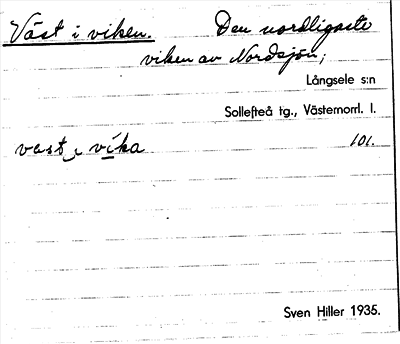 Väst i viken. Den nordligaste
viken av Nordsjön;
Långsele s:n
Sollefteå tg., Västernorrl. l.
vast i vika 101.
Sven Hiller 1935.